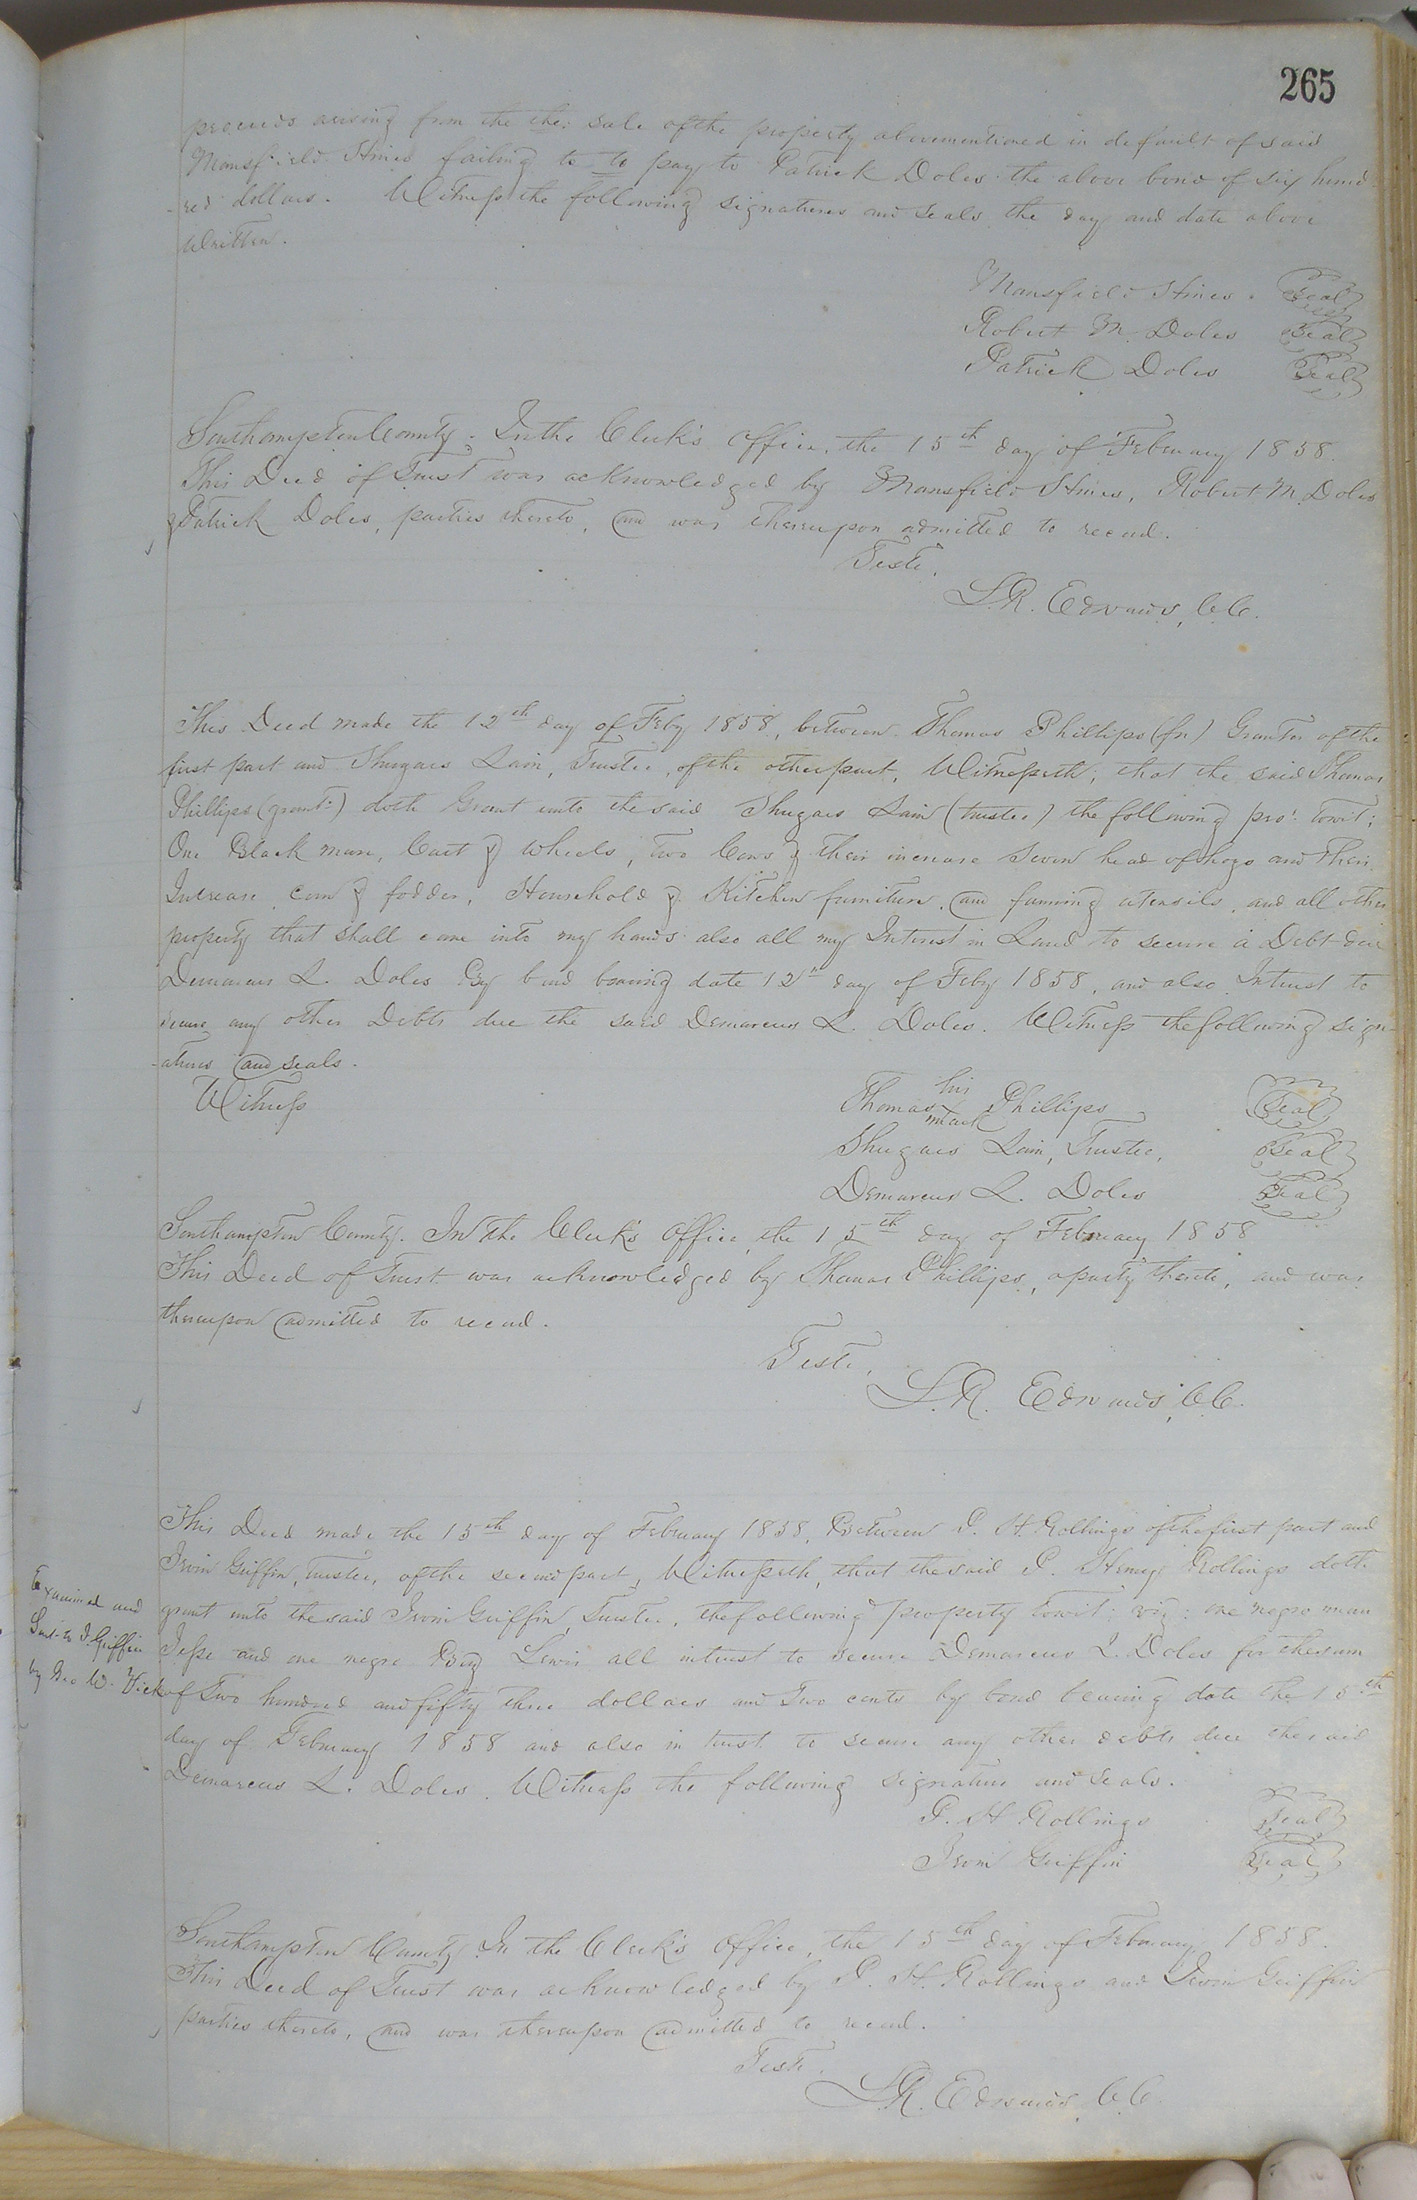 265
proceeds arising from the the sale of the property abovementioned in default of said
Mansfield Hines failing to to pay to Patrick Doles the above bond of six hund
-red dollars. Witness the following signatures and seals the day and date above
Written.
Mansfield Hines. Seal
Robert M. Doles Seal
Patrick Doles Seal
Southampton County. In the Clerk's Office, the 15th day of February 1858.
This Deed of Trust was acknowledged by Mansfield Hines, Robert M. Doles
& Patrick Doles, parties thereto, and was thereupon admitted to record.
Teste,
L. R. Edwards, C.C.
This Deed made the 12th day of Feby 1858, between Thomas Phillips (fn) Grantor of the
first part and Shugars Lain, Trustee, of the other part, Witnesseth; that the said Thomas
Phillips (grant.) doth Grant unto the said Shugars Lain (trustee) the following pro. towit;
One Black mare, Cart & wheels, two Cows & their increase Seven head of hogs and their
Increase corn & fodder, Household & Kitchen furniture, and farming utensils, and all other
property that shall come into my hands also all my Interest in Land to secure a Debt due
Demarcus L. Doles By bond bearing date 12th day of Feby 1858, and also Intrust to
secure any other Debts due the said Demarcus L. Doles. Witness the following sign
-atures and seals.
Witness
Thomas his mark Phillips Seal
Shugars Lain, Trustee, Seal
Demarcus L. Doles Seal
Southampton County. In the Clerk's Office, the 15th day of February 1858
This Deed of Trust was acknowledged by Thomas Phillips, a party thereto, and was
thereupon admitted to record.
Teste,
L. R. Edwards, C.C.
This Deed made the 15th day of February 1858, Between P. H. Rollings of the first part and
Irvin Griffin, trustee, of the second part, Witnesseth, that the said P. Henry Rollings doth
grant unto the said Irvin Griffin, Trustee, the following property towit; viz; one negro man
Jesse and one negro Boy Lewis all intrust to secure Demarcus L. Doles for the sum
of Two hundred and fifty three dollars and Two cents by bond bearing date the 15th
day of February 1858 and also in trust to secure any other debts due the said
Demarcus L. Doles. Witness the following signature and seals.
Examined and
Sent to I. Griffin
by Geo W. Vick
P. H. Rollings Seal
Irvin Griffin Seal
Southampton County. In the Clerk's Office, the 15th day of February, 1858.
This Deed of Trust was acknowledged by P. H. Rollings and Irvin Griffin
parties thereto, and was thereupon admitted to record.
Teste.
L. R. Edwards, C.C.